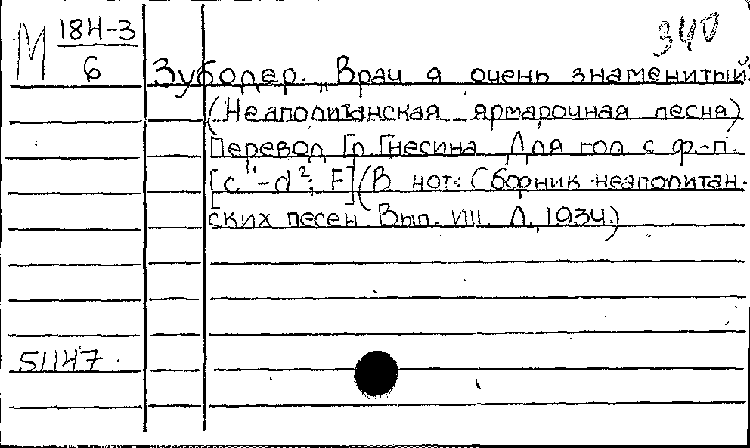 М 18Н-3
6
340
Зубодер. „Врач я очень знаменитый"
(Неаполитанская ярмарочная песня)
Перевод Гр. Гнесина. Для гол. с ф.-п.
[c¹-d²; F] (В нот: Сборник неаполитан-
ских песен. Вып. VIII. Л., 1934.)
51147.